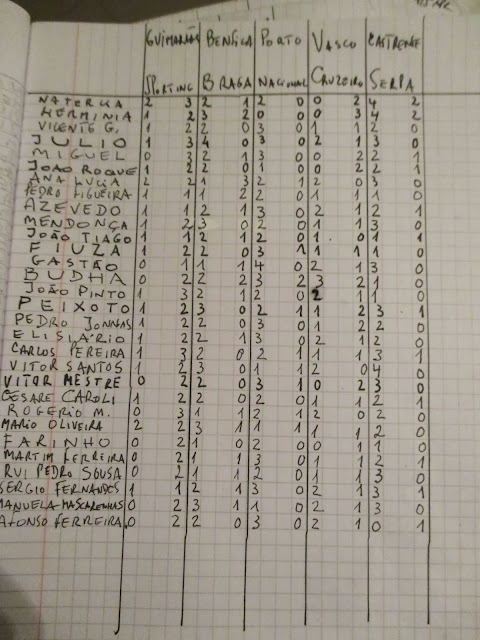 GUIMARÃES BENFICA PORTO VASCO CASTRENSE
SPORTING BRAGA NACIONAL CRUZEIRO SERPA
NATERCIA 2 3 2 1 2 0 0 2 4 2
HERMINIA 1 2 3 2 0 0 0 3 4 2
VICENTE G. 1 2 2 0 3 0 1 1 2 0
JULIO 1 3 4 0 3 0 2 1 3 0
MIGUEL 0 3 2 1 3 0 0 2 2 1
JOÃO ROQUE 1 2 2 0 1 0 0 2 2 1
ANA LUCIA 2 2 1 3 2 1 2 0 3 0
PEDRO FIGUEIRA 1 1 1 2 2 0 1 1 1 0
AZEVEDO 1 1 2 1 3 0 2 1 2 1
MENDONÇA 1 2 3 0 2 0 1 1 3 0
JOÃO TIAGO 1 1 2 1 2 0 1 0 1 1
FIUZA 1 2 2 0 3 1 1 1 1 0
GASTÃO 0 1 1 1 4 0 2 1 3 0
BUDHA 0 2 2 2 3 2 3 2 1 0
JOÃO PINTO 1 3 2 1 2 0 2 1 1 0
PEIXOTO 1 2 3 0 2 1 1 2 3 1
PEDRO JONNAS 0 2 2 0 3 0 1 2 2 0
ELISIARIO 0 2 2 1 3 0 2 1 2 0
CARLOS PEREIRA 1 3 2 0 2 1 1 1 3 1
VITOR SANTOS 1 2 3 0 1 1 2 0 4 0
VITOR MESTRE 0 2 2 0 3 1 0 2 3 0
CESARE CAROLI 1 2 2 0 2 0 1 1 2 1
ROGERIO M. 0 3 1 1 2 1 2 0 2 0
MARIO OLIVEIRA 2 2 3 1 1 1 1 1 2 0
FARINHO 0 2 1 0 2 0 0 1 1 0
MARTIM FERREIRA 0 2 1 1 3 0 1 1 2 1
RUI PEDRO SOUSA 0 2 1 1 2 0 1 1 3 0
SERGIO FERNANDES 1 1 2 1 3 0 2 1 3 1
MANUELA MASCARENHAS 0 2 3 1 1 0 2 1 3 0
AFONSO FERREIRA 0 2 2 0 3 0 2 1 0 1